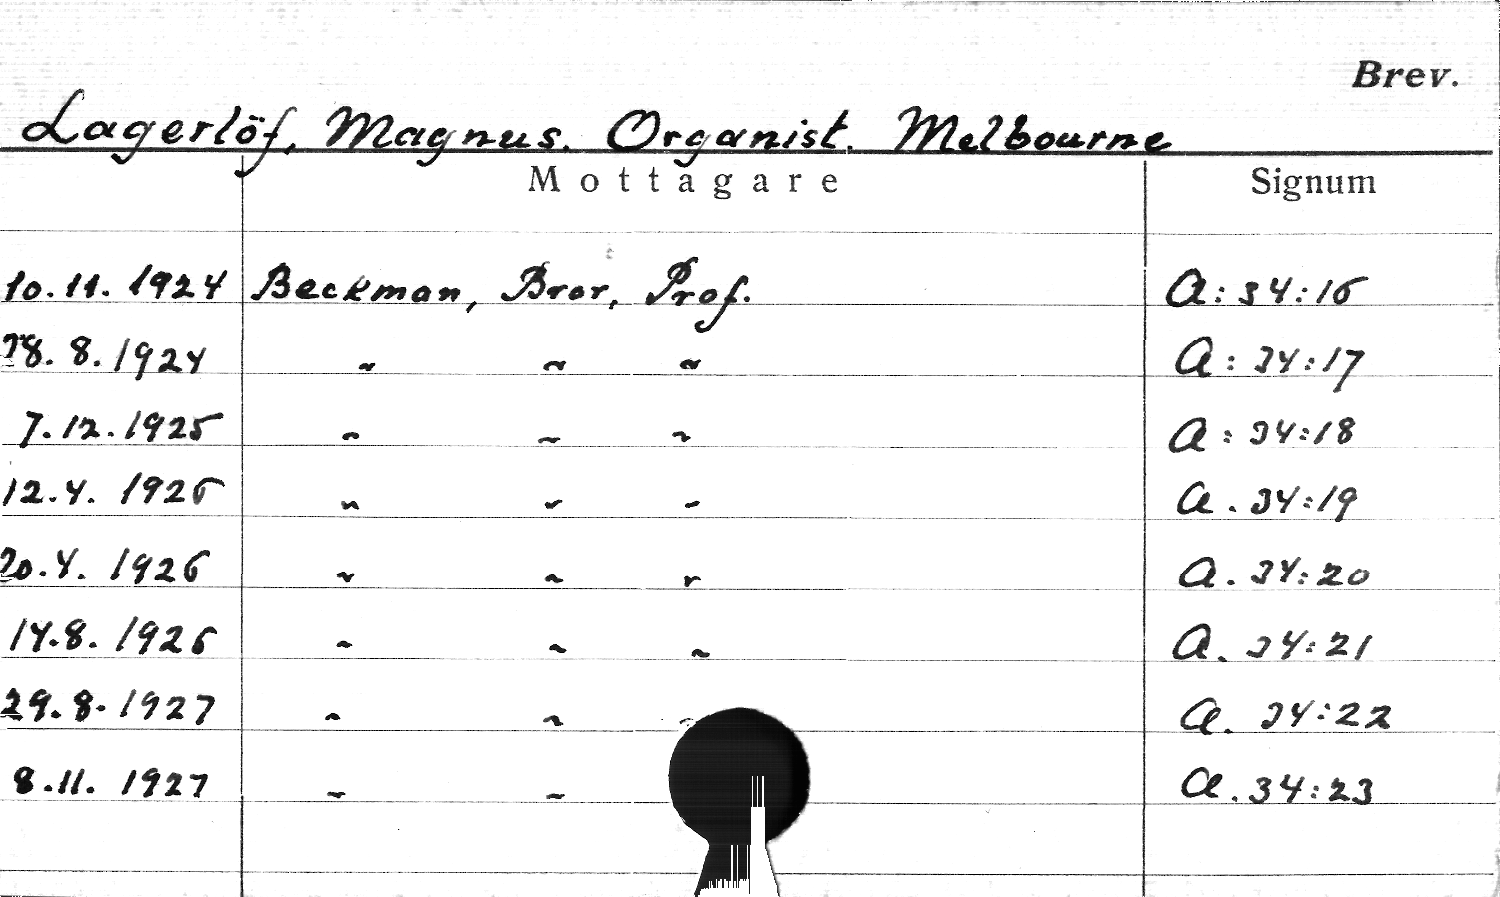 Brev.
Lagerlöf, Magnus. Organist. Melbourne
Mottagare Signum
10.11.1924 Beckman, Bror, Prof. A:34:16
28.8.1924 " " " A:34:17
7.12.1925 " " " A:34:18
12.4.1926 " " " A.34:19
20.4.1926 " " " A.34:20
14.8.1926 " " " A.34:21
29.8.1927 " " " A.34:22
8.11.1927 " " A.34:23